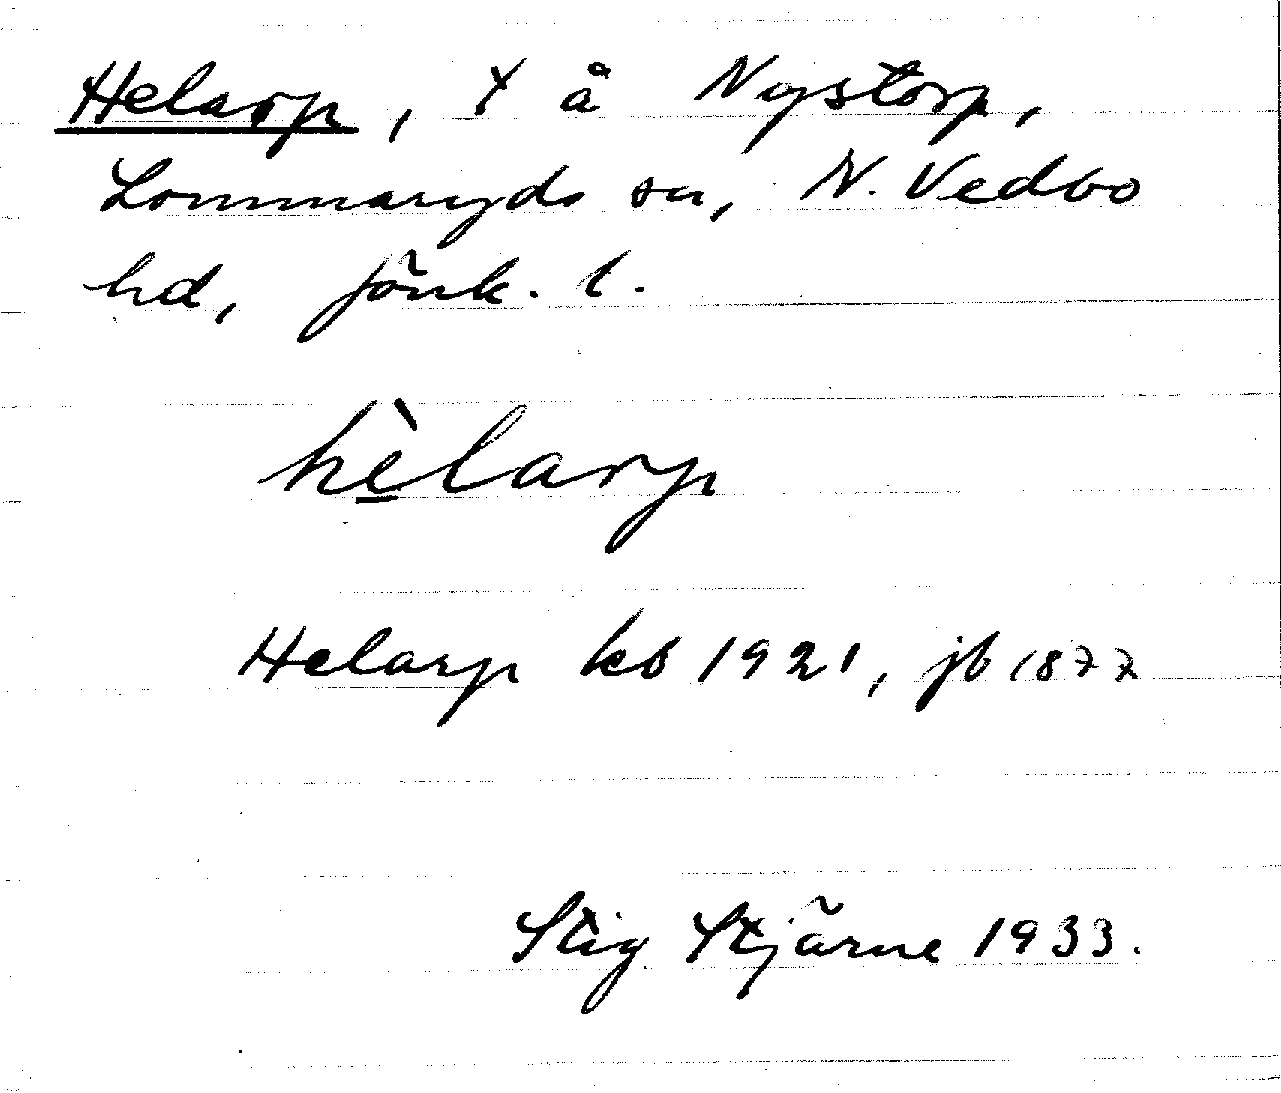 Helarp, × å Nystorp,
Lommaryds sn, N. Vedbo
hd, Jönk. l.
hèlarp
Helarp kb 1921, jb 1877
Stig Stjärne 1933.